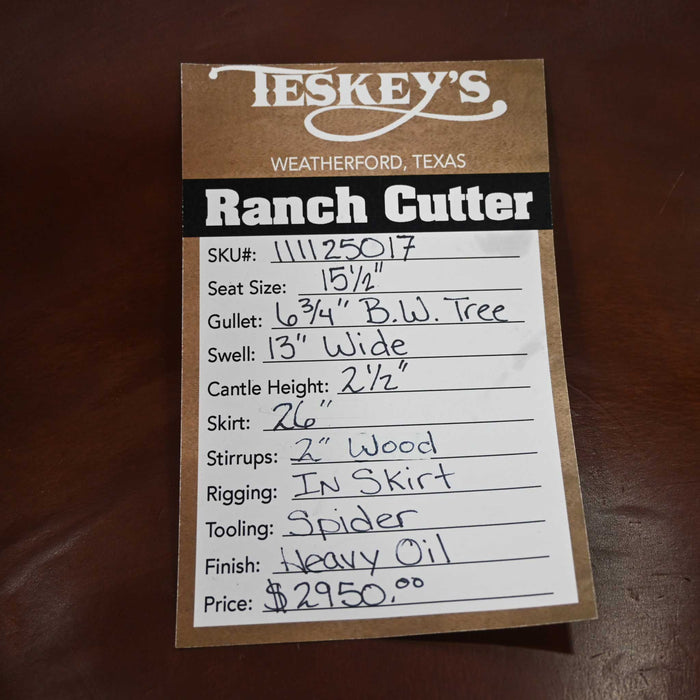 TESKEY'S
WEATHERFORD, TEXAS
Ranch Cutter
SKU#: 111125017
Seat Size: 15½"
Gullet: 6¾" B.W. Tree
Swell: 13" Wide
Cantle Height: 2½"
Skirt: 26"
Stirrups: 2" Wood
Rigging: IN Skirt
Tooling: Spider
Finish: Heavy Oil
Price: $2950.00